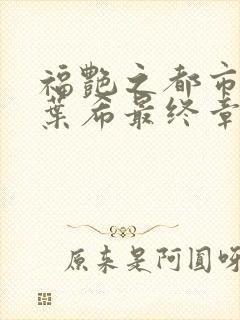 福艷之都市
葉希最终章
原来是阿圓呀